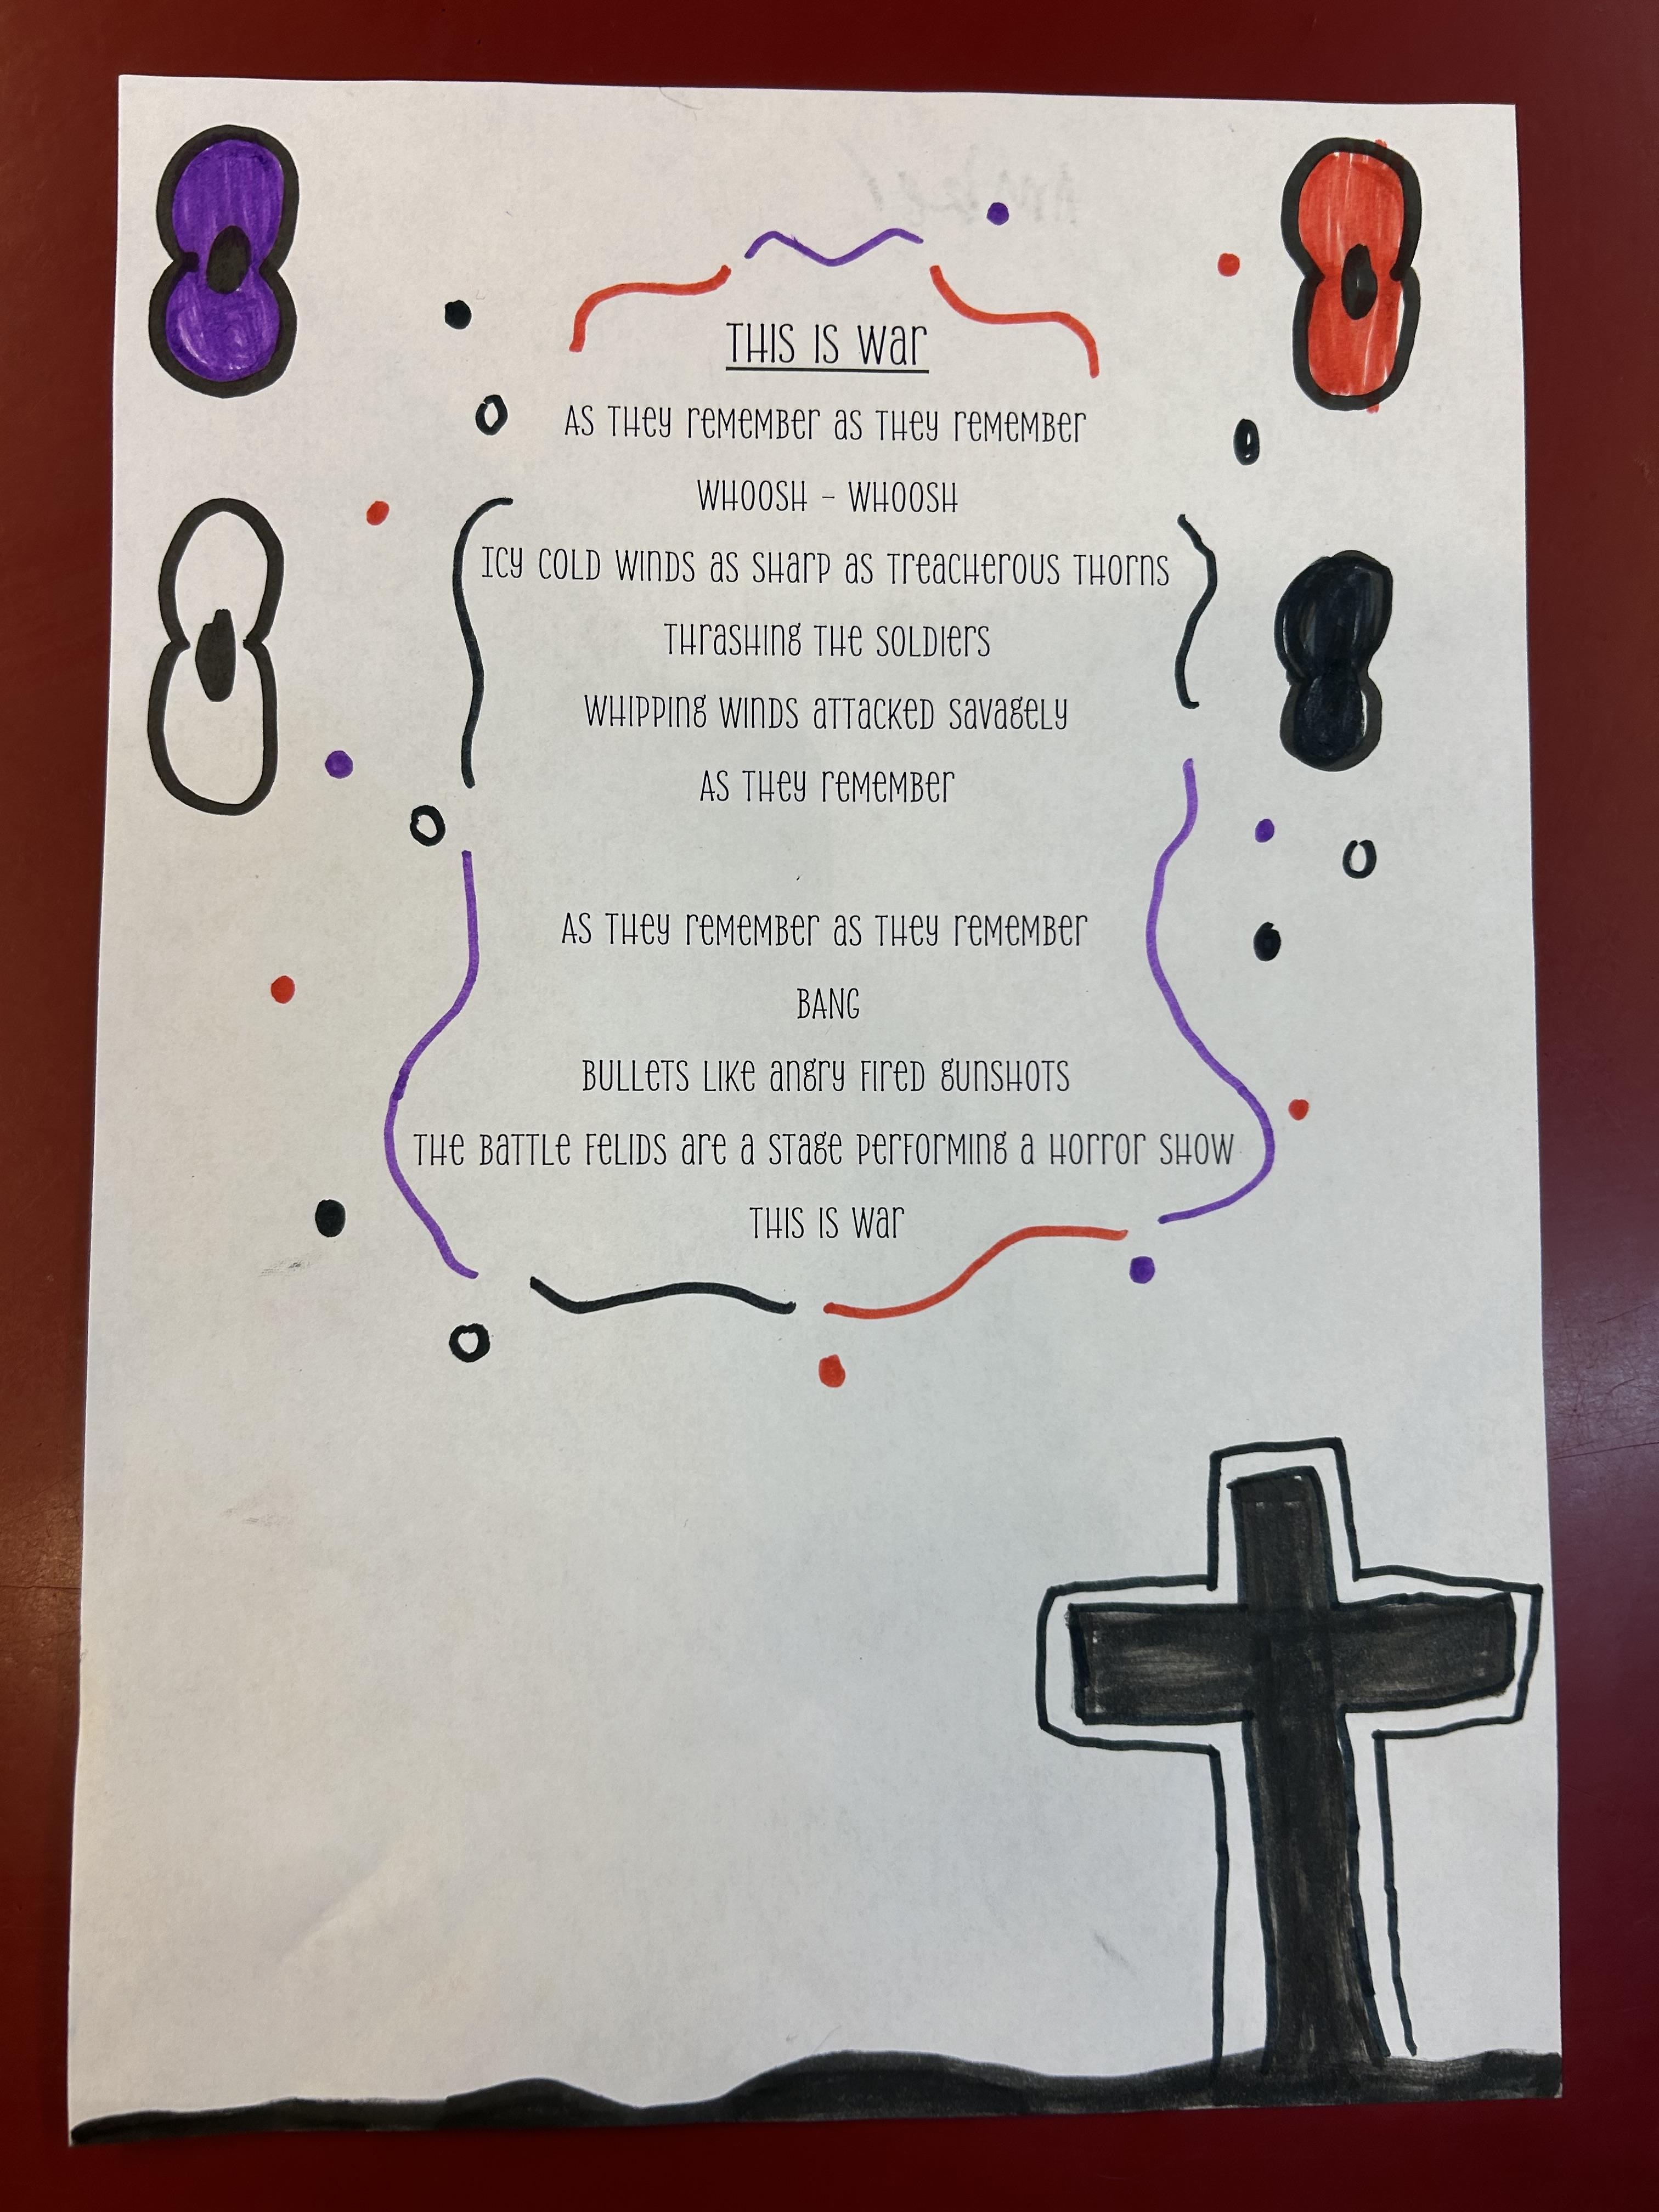 THIS IS war
AS THey reMEMBer as THey reMEMBer
WHOOSH - WHOOSH
Icy COLD WINDS as SHarp as TreacHerOUS THOrns
THrasHIng THe SOLDIers
WHIPPIng WINDS aTTacKeD savageLy
AS THey reMEMBer
AS THey reMEMBer as THey reMEMBer
BANG
BULLeTS LIKe angry FIreD gunsHOTS
THe BaTTLe FeLIDS are a STage PerFOrMIng a HOrrOr SHOW
THIS IS war